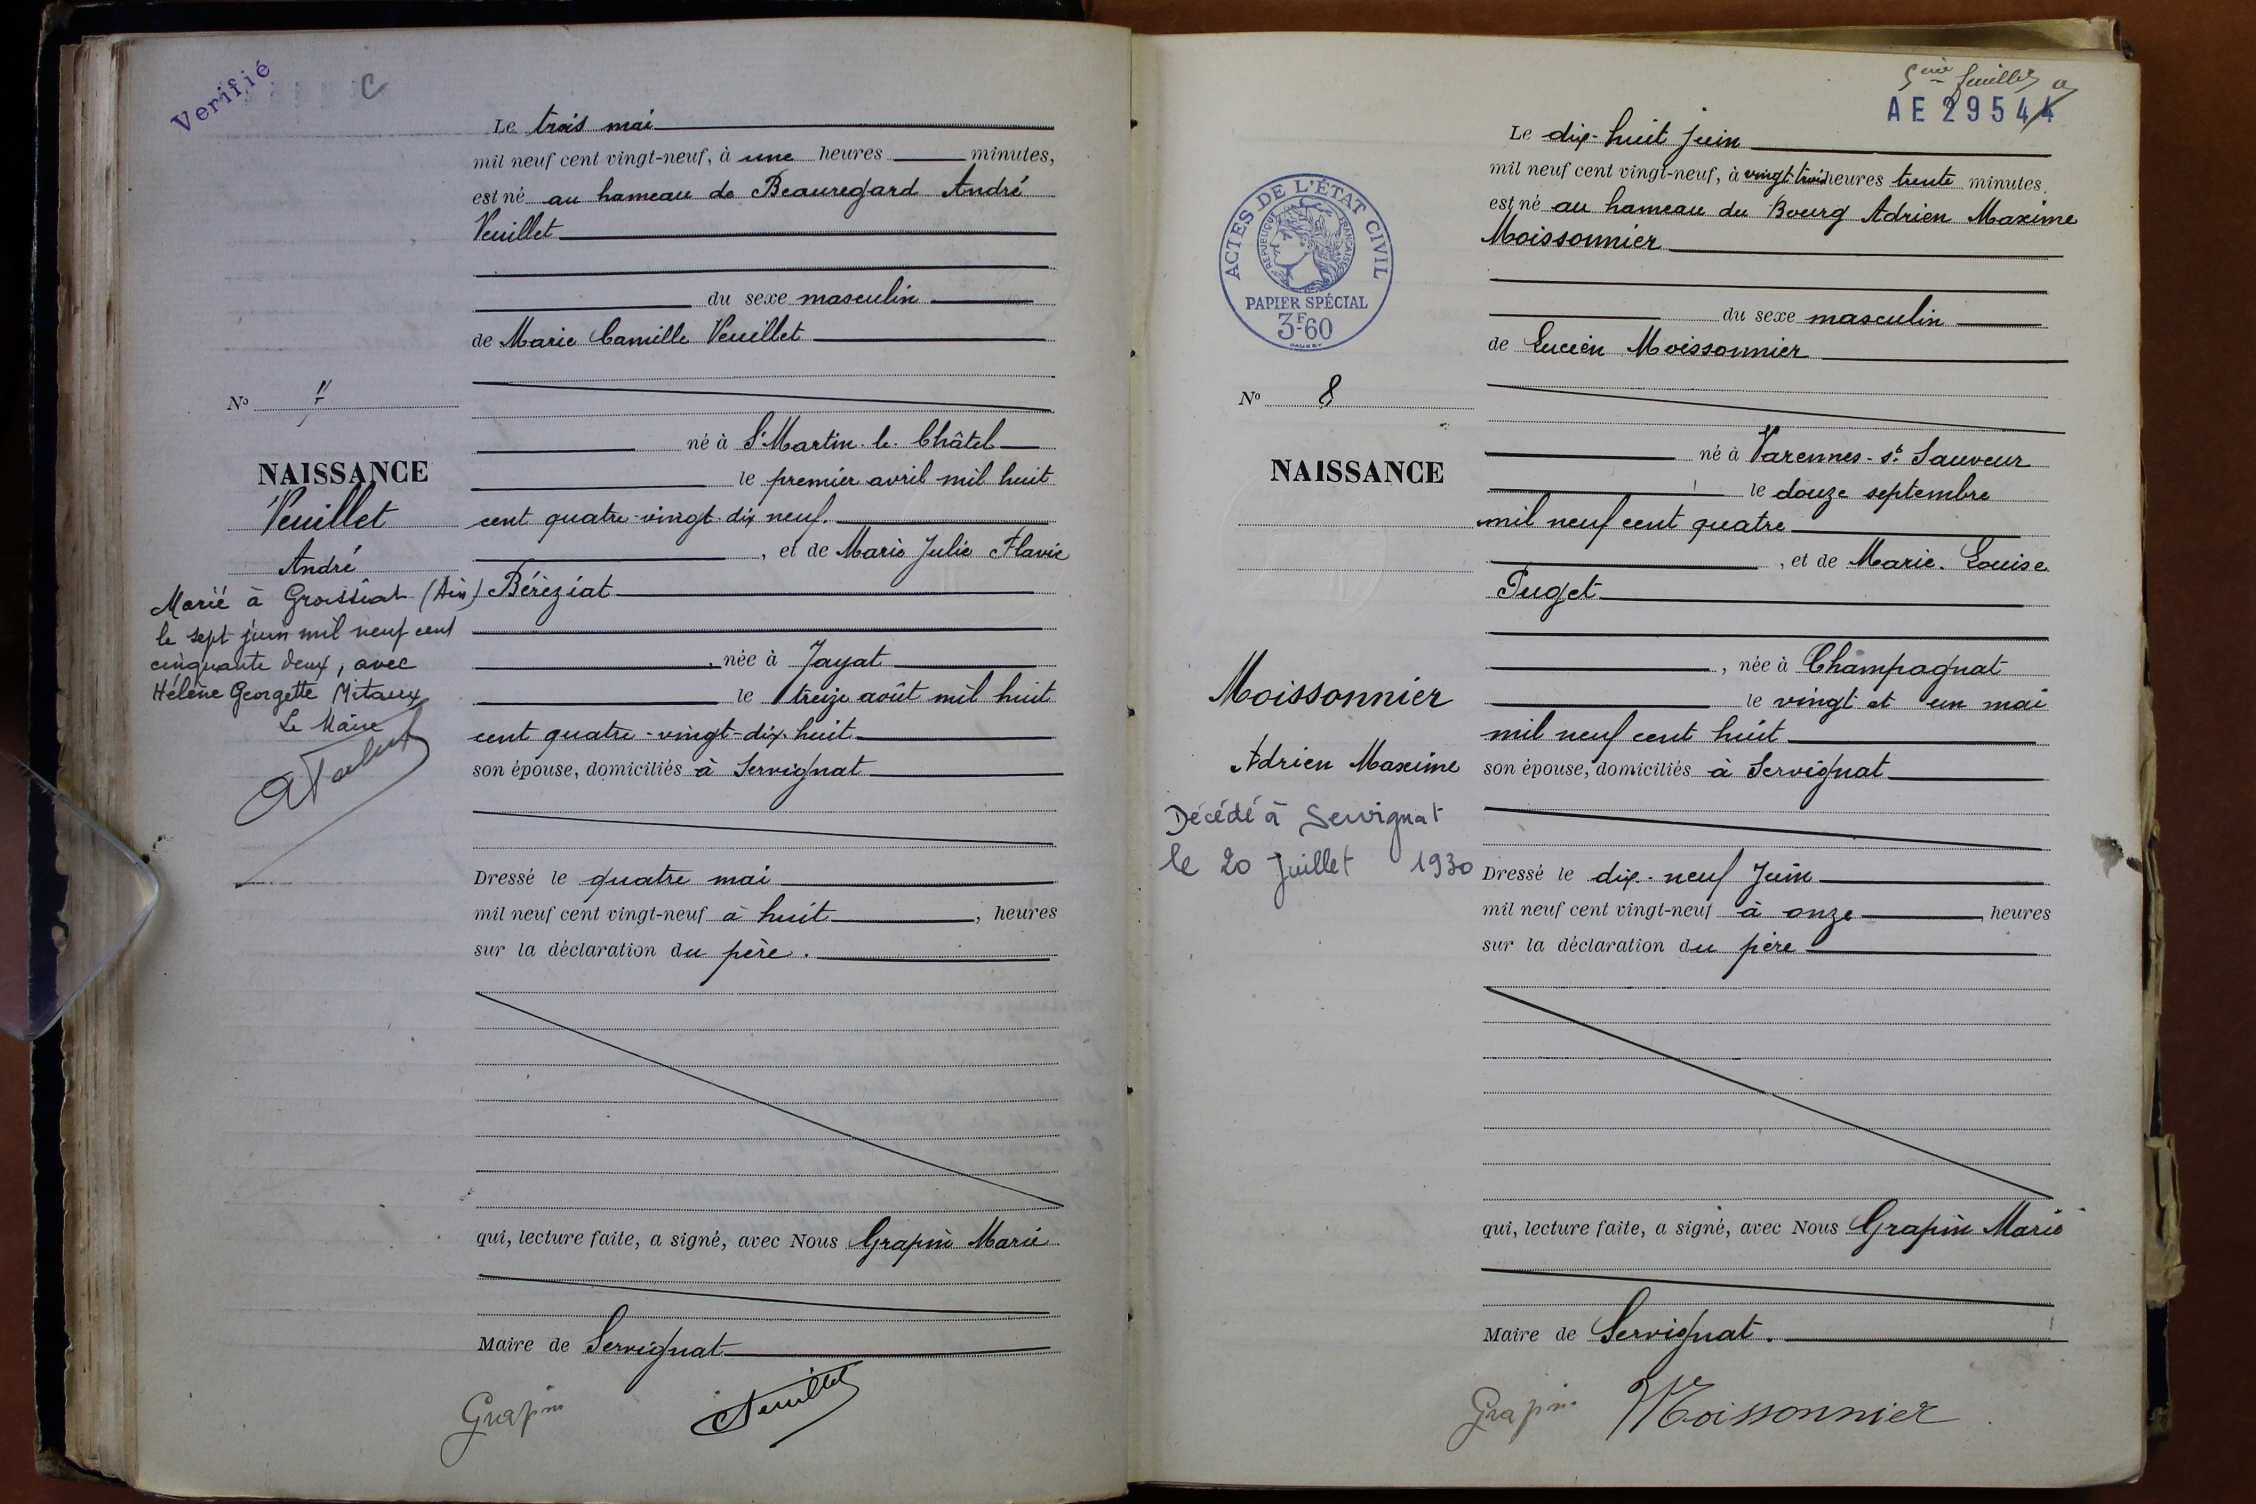 Verifié
C
Le trois mai
mil neuf cent vingt-neuf, à une heures minutes,
est né au hameau de Beauregard André
Veuillet
du sexe masculin
de Marie Camille Veuillet
né à St Martin-le-Châtel
le premier avril mil huit
cent quatre-vingt-dix neuf.
, et de Marie Julie Flavie
Béréziat
, née à Jayat
le treize août mil huit
cent quatre-vingt-dix-huit
son épouse, domiciliés à Servignat
Dressé le quatre mai
mil neuf cent vingt-neuf à huit, heures
sur la déclaration du père.
qui, lecture faite, a signé, avec Nous Grapin Marie
Maire de Servignat
Grapin Veuillet
No 7
NAISSANCE
Veuillet
André
Marié à Groissiat (Ain)
le sept juin mil neuf cent
cinquante deux, avec
Hélène Georgette Mitaux
Le Maire
5eme feuillet
AE 29544
Le dix-huit juin
mil neuf cent vingt-neuf, à vingt trois heures trente minutes,
est né au hameau du Bourg Adrien Maxime
Moissonnier
du sexe masculin
de Lucien Moissonnier
né à Varennes-St. Sauveur
le douze septembre
mil neuf cent quatre
, et de Marie-Louise
Puget
, née à Champagnat
le vingt et un mai
mil neuf cent huit
son épouse, domiciliés à Servignat
Dressé le dix-neuf Juin
mil neuf cent vingt-neuf à onze, heures
sur la déclaration du père
qui, lecture faite, a signé, avec Nous Grapin Marie
Maire de Servignat.
Grapin Moissonnier
ACTES DE L'ÉTAT CIVIL
RÉPUBLIQUE FRANÇAISE
PAPIER SPÉCIAL
3F60
No 8
NAISSANCE
Moissonnier
Adrien Maxime
Décédé à Servignat
le 20 Juillet 1930